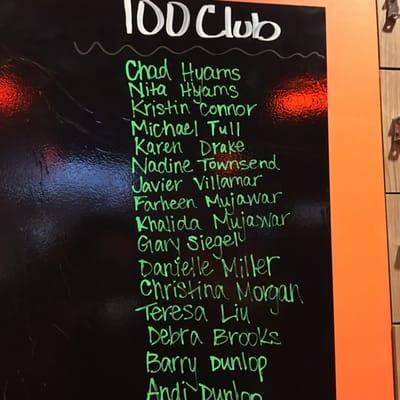 100 Club
Chad Hyams
Nita Hyams
Kristin Connor
Michael Tull
Karen Drake
Nadine Townsend
Javier Villamar
Farheen Mujawar
Khalida Mujawar
Gary Siegel
Danielle Miller
Christina Morgan
Teresa Liu
Debra Brooks
Barry Dunlop
Andi Dunlop